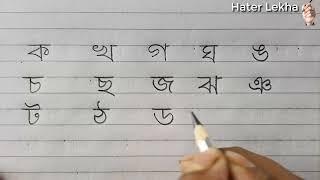 Hater Lekha
ক খ গ ঘ ঙ
চ ছ জ ঝ ঞ
ট ঠ ড